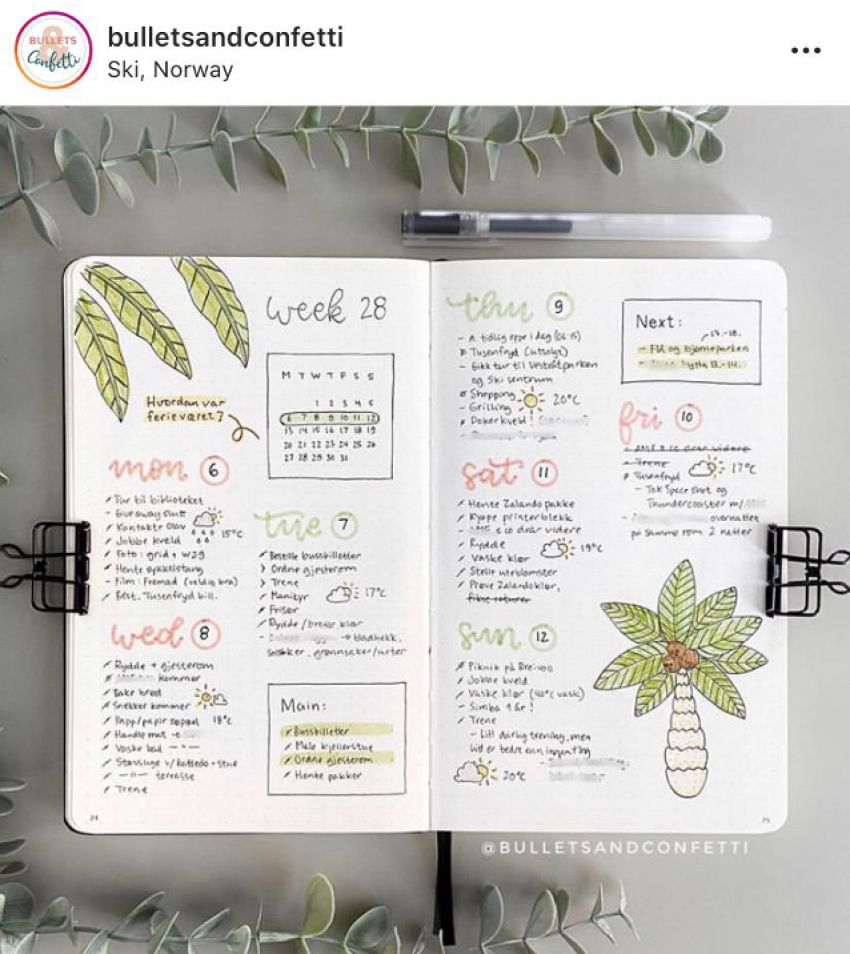 BULLETS
&
Confetti
bulletsandconfetti
Ski, Norway
week 28
M T W T F S S
1 2 3 4 5
6 7 8 9 10 11 12
13 14 15 16 17 18 19
20 21 22 23 24 25 26
27 28 29 30 31
Hvordan var
ferieværet?
mon 6
Tur til biblioteket
- Giveaway slutt
Kontakte Olav
15°C
Jobbe kveld
Foto: grid + w29
Hente sykkelstang
- Film: Fremad (veldig bra)
Best. Tusenfryd bill.
tue 7
Bestille bussbilletter
> Ordne gjesterom
> Trene
Manikyr
17°C
Frisør
Rydde / brette klær
→ bladhekk,
grønnsaker/urter
wed 8
Rydde + gjesterom
kommer
Bake brød
Snekker kommer
Papp/papir søppel
18°C
Handle mat
Vaske bad — " —
Støvsuge
— " — terrasse
Trene
Main:
Bussbilletter
Male kjellerstue
Ordne gjesterom
Hente pakker
24
thu 9
- A. tidlig oppe i dag (06:15)
Tusenfryd (utsolgt)
- Gikk tur til Vestråtparken
og Ski sentrum
Shopping
20°C
- Grilling
Pokerkveld!
Next:
17.-18.
- FLÅ og bjørneparken
hytta 13.-14.
fri 10
drar videre
- Trene
Tusenfryd
17°C
- Tok Space Shot og
Thundercoaster m/
overnattet
på samme rom 2 netter
sat 11
Hente Zalando pakke
Kjøpe printerblekk
drar videre
Rydde
Vaske klær
19°C
Stelle uteblomster
Prøve Zalandoklær,
fikse returer
sun 12
Piknik på Breivoll
Jobbe kveld
Vaske klær (40°C vask)
- Simba 1 år!
Trene
- Litt dårlig trening, men
litt er bedre enn ingenting
20°C
25
@BULLETSANDCONFETTI